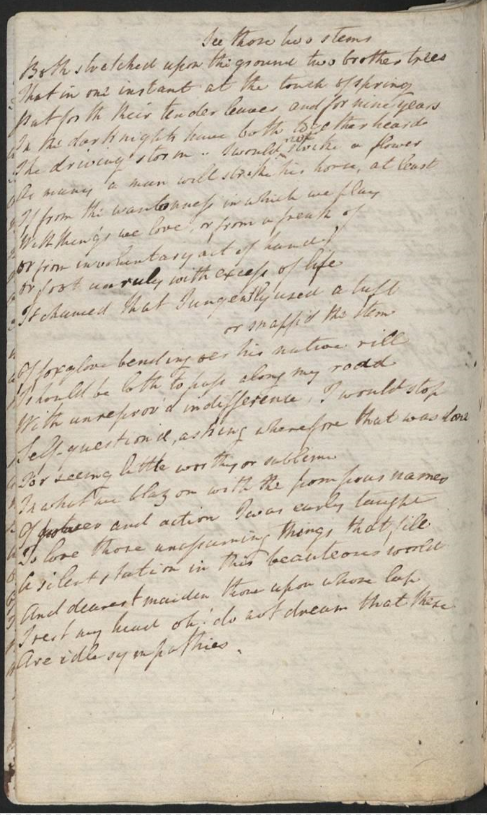 See those two stems
Both stretched upon the ground two brother trees
That in one instant at the touch of spring
Put forth their tender leaves and for nine years
In the dark night have both together heard
The driving storm. I would not strike a flower
As many a man will strike his horse, at least
If from the wantonness in which we play
With things we love, or from a freak of
Or from involuntary act of hand
Or foot unruly with excess of life
It chanced that I ungently used a tuft
or snapp'd the stem
Of foxglove bending oer his native rill
I should be loth to pass along my road
With unreprov'd indifference, I would stop
Self-question'd, asking wherefore that was done
For seeing little worthy or sublime
In what we blazon with the pompous names
Of power and action I was early taught
To love those unassuming things that fill
A silent station in this beauteous world
And dearest maiden thou upon whose lap
I rest my head oh! do not dream that these
Are idle sympathies.